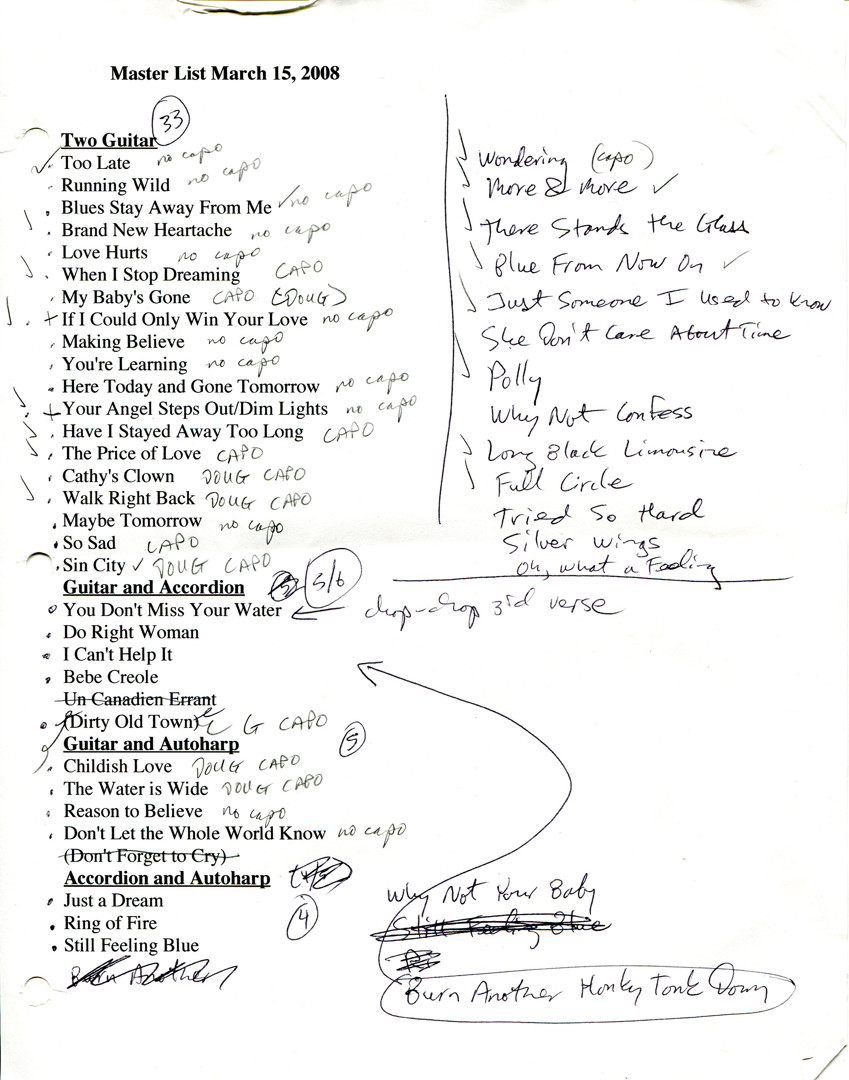 Master List March 15, 2008
33
Two Guitar
Too Late no capo
Running Wild no capo
Blues Stay Away From Me ✓ no capo
Brand New Heartache no capo
Love Hurts no capo
When I Stop Dreaming CAPO
My Baby's Gone CAPO (DOUG)
+ If I Could Only Win Your Love no capo
Making Believe no capo
You're Learning no capo
Here Today and Gone Tomorrow no capo
+ Your Angel Steps Out/Dim Lights no capo
Have I Stayed Away Too Long CAPO
The Price of Love CAPO
Cathy's Clown DOUG CAPO
Walk Right Back DOUG CAPO
Maybe Tomorrow no capo
So Sad CAPO
Sin City ✓ DOUG CAPO
Guitar and Accordion 5/6
You Don't Miss Your Water
Do Right Woman
I Can't Help It
Bebe Creole
Un Canadien Errant
(Dirty Old Town) G CAPO
Guitar and Autoharp 5
Childish Love DOUG CAPO
The Water is Wide DOUG CAPO
Reason to Believe no capo
Don't Let the Whole World Know no capo
(Don't Forget to Cry)
Accordion and Autoharp
4
Just a Dream
Ring of Fire
Still Feeling Blue
Burn Another
Wondering (capo)
More & More ✓
There Stands the Glass
Blue From Now On ✓
Just Someone I Used to Know
She Don't Care About Time
Polly
Why Not Confess
Long Black Limousine
Full Circle
Tried So Hard
Silver Wings
Oh, what a Feeling
chop-chop 3rd verse
Why Not Your Baby
Still Feeling Blue
Burn Another Honky Tonk Down